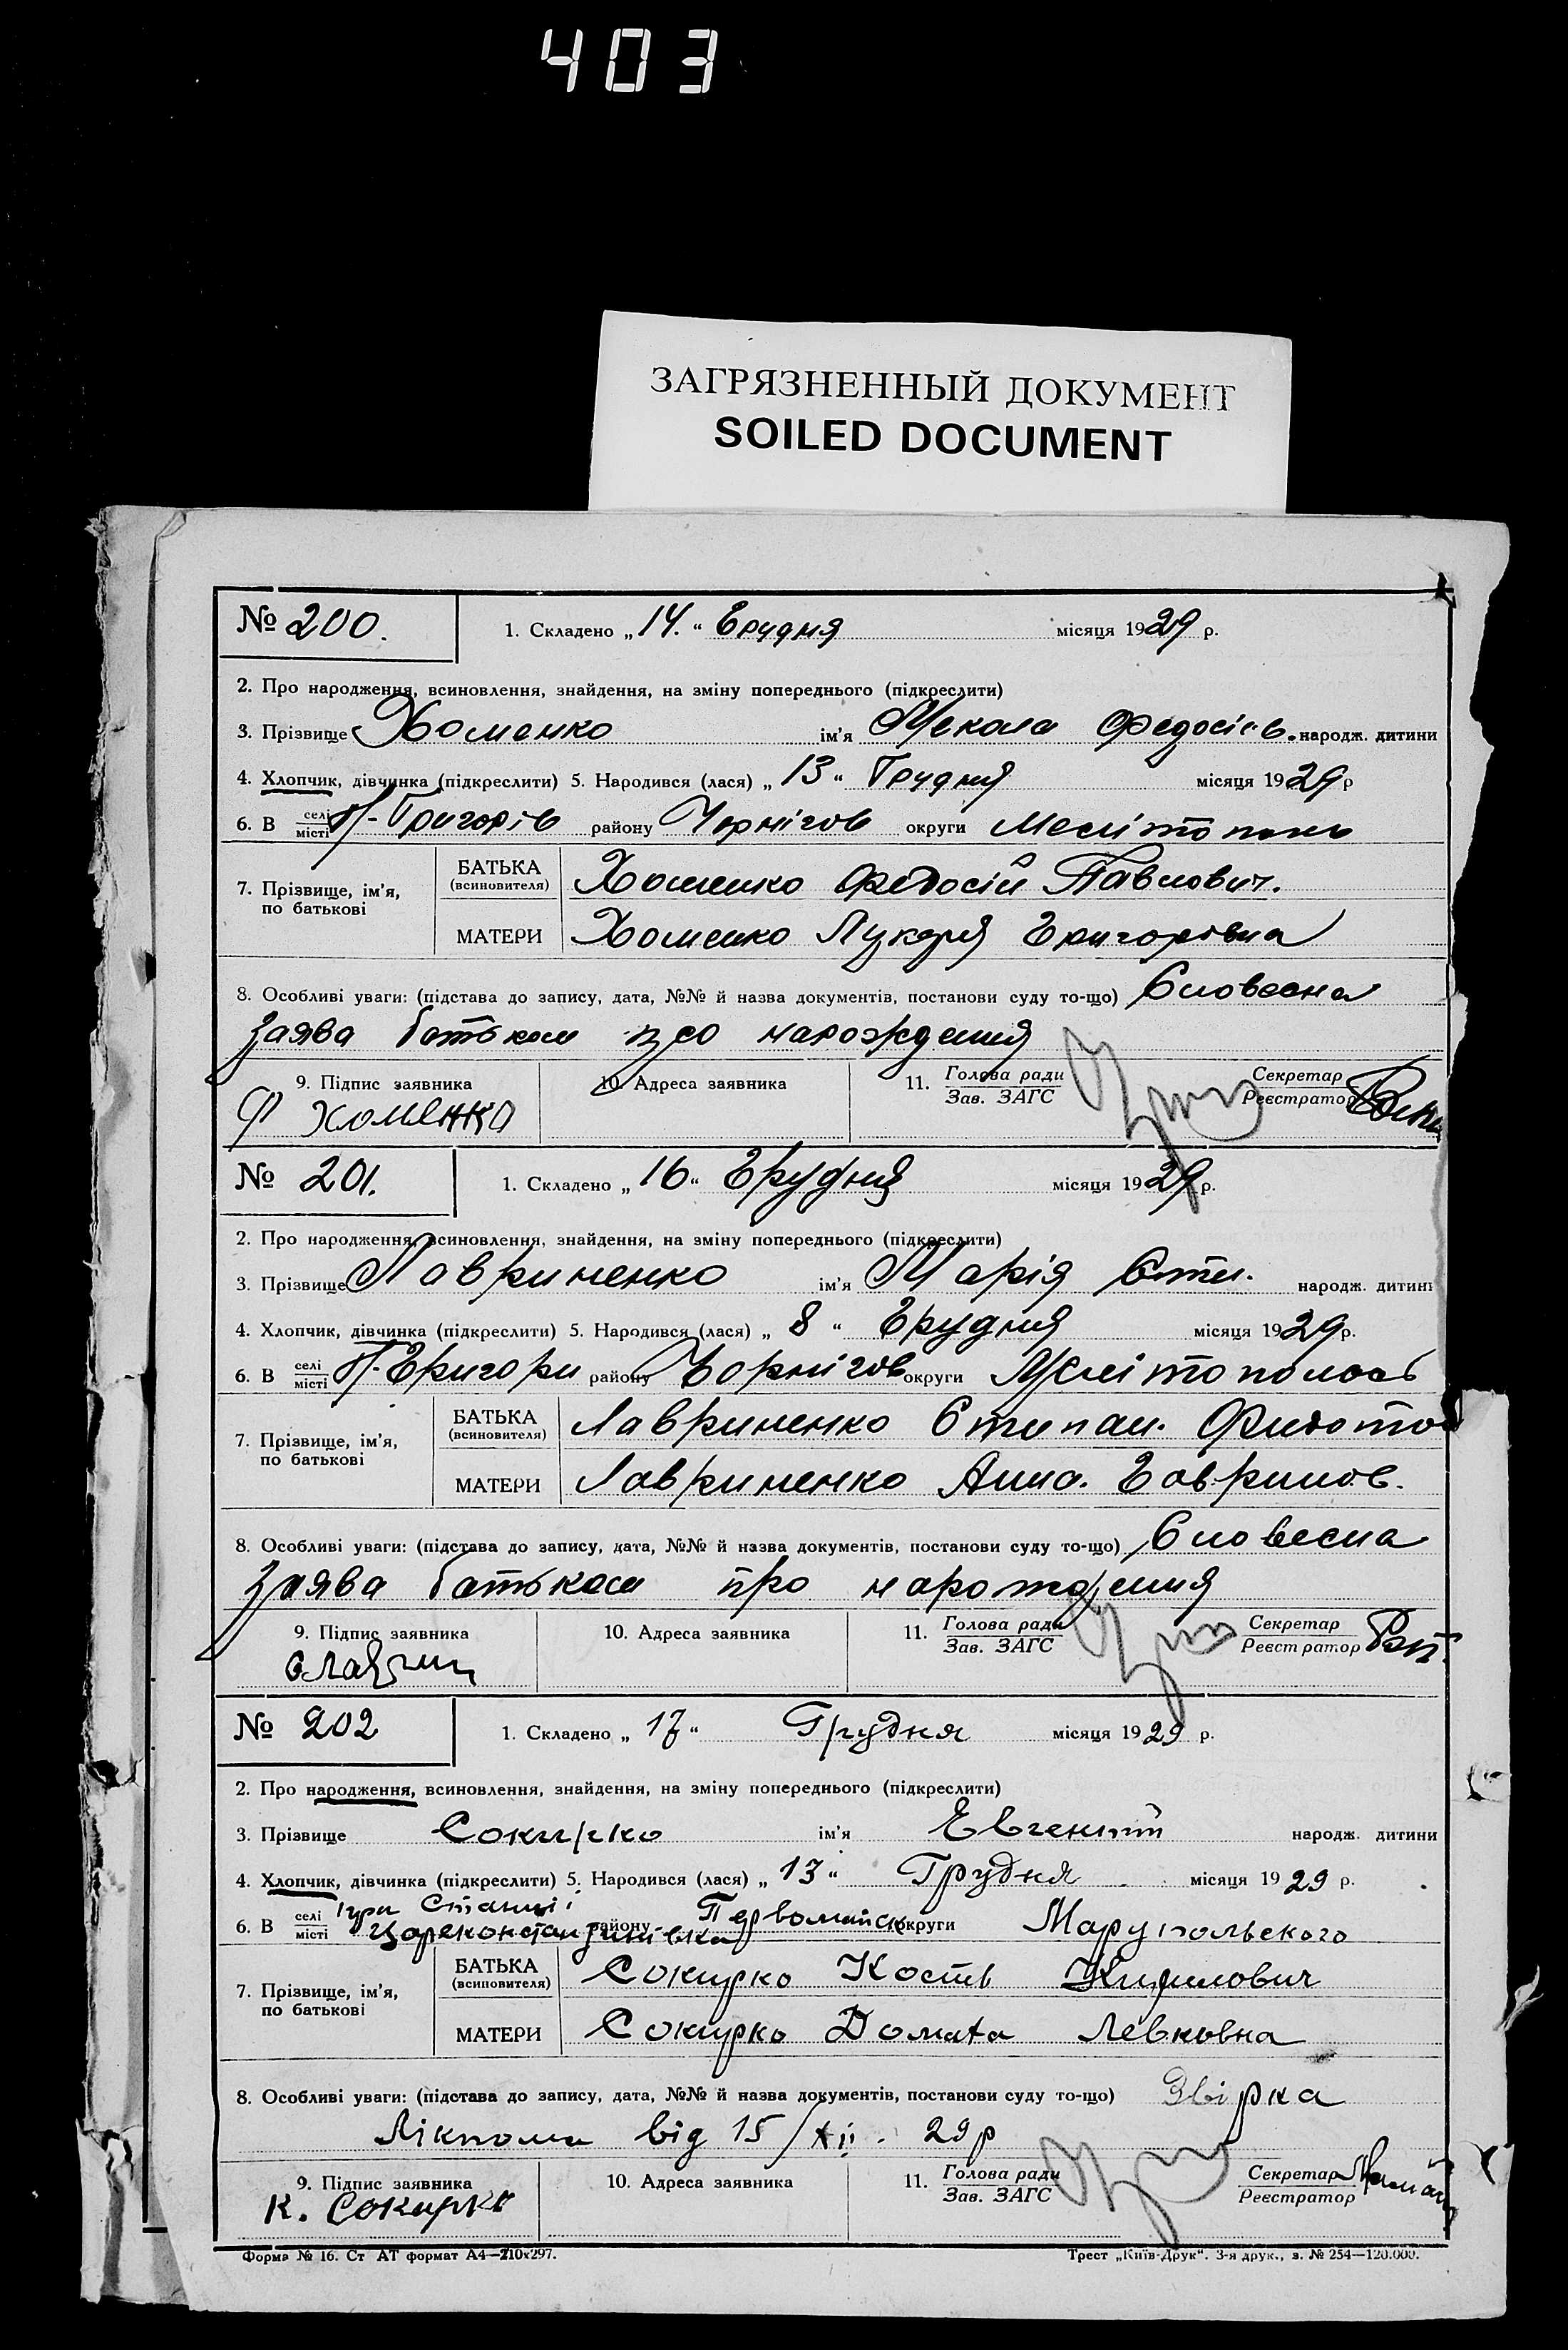 403
ЗАГРЯЗНЕННЫЙ ДОКУМЕНТ
SOILED DOCUMENT
№ 200. 1. Складено „ 14. “ Грудня місяця 1929 р.
2. Про народження, всиновлення, знайдення, на зміну попереднього (підкреслити)
3. Прізвище Хоменко ім'я Мекола Федосієв. народж. дитини
4. Хлопчик, дівчинка (підкреслити) 5. Народився (лася) „ 13 “ Грудня місяця 1929 р
6. В селі місті Н-Григорів району Чорнігов округи Мелітополь
7. Прізвище, ім'я, по батькові БАТЬКА (всиновителя) Хоменко Федосій Павлович.
МАТЕРИ Хоменко Лукеря Григоровна
8. Особливі уваги: (підстава до запису, дата, №№ й назва документів, постанови суду то-що) Словесна
заява батьком про нарождения
9. Підпис заявника 10. Адреса заявника 11. Голова ради Зав. ЗАГС Секретар Реєстратор
Ф Хоменко
№ 201. 1. Складено „ 16 “ Грудня місяця 1929 р.
2. Про народження, всиновлення, знайдення, на зміну попереднього (підкреслити)
3. Прізвище Лавриненко ім'я Марія Сте. народж. дитини
4. Хлопчик, дівчинка (підкреслити) 5. Народився (лася) „ 8 “ Грудня місяця 1929 р.
6. В селі місті Н-Григори району Чорнігов округи Мелітополось
7. Прізвище, ім'я, по батькові БАТЬКА (всиновителя) Лавриненко Степан. Федотов
МАТЕРИ Лавриненко Анна. Гаврилов.
8. Особливі уваги: (підстава до запису, дата, №№ й назва документів, постанови суду то-що) Словесна
заява батьком про нарождения
9. Підпис заявника 10. Адреса заявника 11. Голова ради Зав. ЗАГС Секретар Реєстратор
№ 202 1. Складено „ 17 “ Грудня місяця 1929 р.
2. Про народження, всиновлення, знайдення, на зміну попереднього (підкреслити)
3. Прізвище Сокирко ім'я Евгений народж. дитини
4. Хлопчик, дівчинка (підкреслити) 5. Народився (лася) „ 13 “ Грудня місяця 1929 р.
6. В селі місті при Станції Цареконстантинівка району Первомайск округи Марупольского
7. Прізвище, ім'я, по батькові БАТЬКА (всиновителя) Сокирко Кость Кирилович
МАТЕРИ Сокирко Домаha Левковна
8. Особливі уваги: (підстава до запису, дата, №№ й назва документів, постанови суду то-що) Звірка
Лікпома від 15/XII. 29 р
9. Підпис заявника 10. Адреса заявника 11. Голова ради Зав. ЗАГС Секретар Реєстратор
К. Сокирко
Форма № 16. Ст АТ формат А4—210х297. Трест „Київ-Друк“. 3-я друк., з. № 254—120.000.